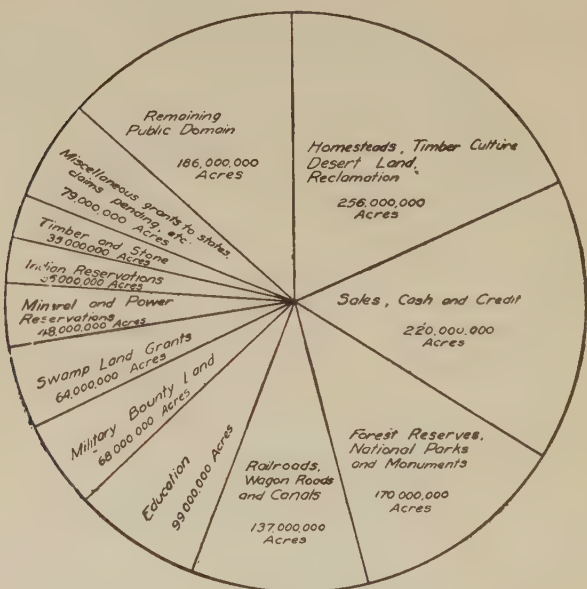 Homesteads, Timber Culture
Desert Land,
Reclamation
256,000,000
Acres
Sales, Cash and Credit
220,000,000
Acres
Forest Reserves,
National Parks
and Monuments
170,000,000
Acres
Railroads,
Wagon Roads
and Canals
137,000,000
Acres
Education
99,000,000 Acres
Military Bounty Land
68,000,000 Acres
Swamp Land Grants
64,000,000 Acres
Mineral and Power
Reservations
48,000,000 Acres
Indian Reservations
Acres
Timber and Stone
Acres
Miscellaneous grants to states,
claims pending, etc.
79,000,000 Acres
Remaining
Public Domain
186,000,000
Acres